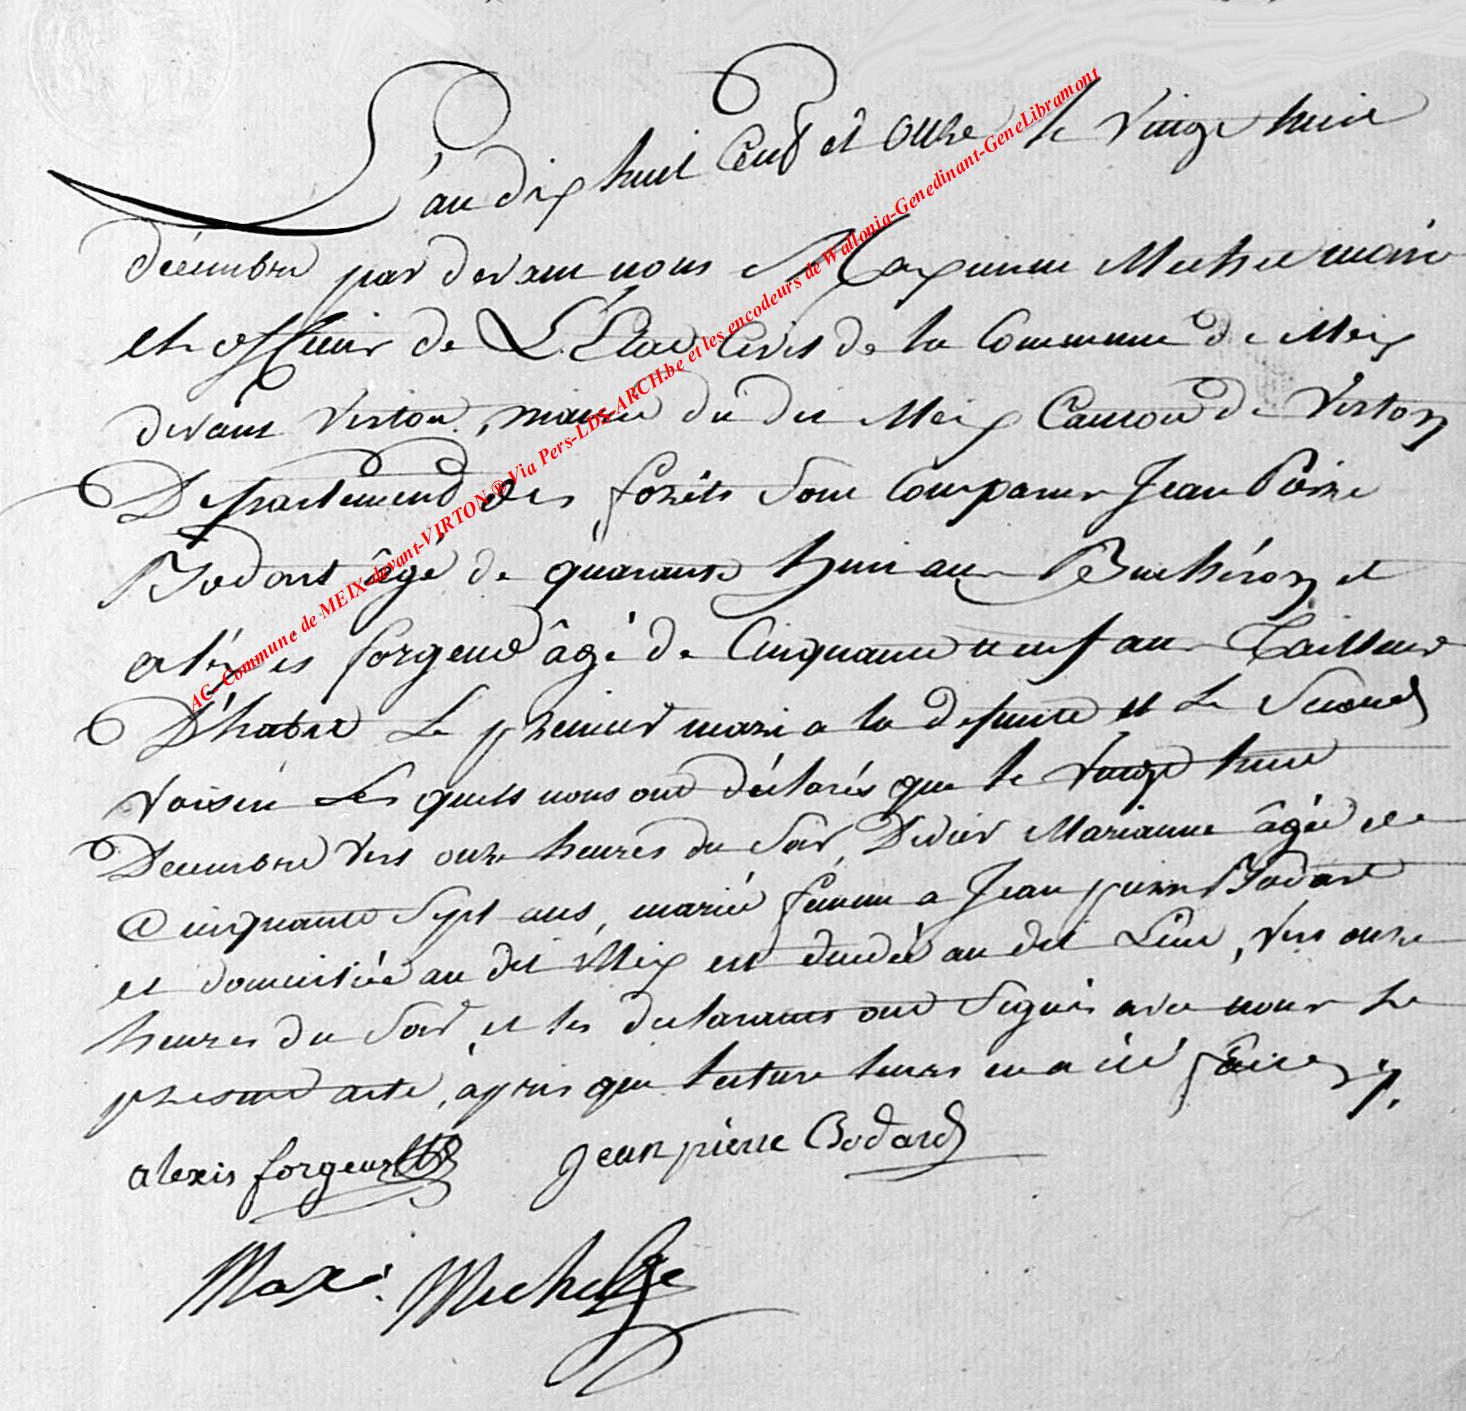 L'an dix huit Cent et onze le vingt huit
décembre par devant nous Maximin Michel maire
et officier de L'Etat Civil de la Commune de Meix
devant Virton, mairie du dit Meix Canton de Virton
Departement des forêts sont comparus Jean Pierre
Bodart âgé de quarante huit ans Bucheron et
aléxis forgeur âgé de Cinquante neuf ans Tailleur
D'habit Le premier mari a la defunte et Le Second
voisin Les quels nous ont déclarés que le vingt huit
Decembre vers onze heures du Soir, Didier Marianne âgée de
Cinquante Sept ans, mariée femme a Jean pierre Bodart
et domiciliée au dit Meix est decedée au dit Lieu, vers onze
heures du Soir, et les declarants ont Signés avec nous le
present acte, après que lecture leurs en a été faite.
alexis forgeur Jean pierre Bodard
Maxi. Michel
AC- Commune de MEIX-devant-VIRTON ® Via Pers-LDS-ARCH.be et les encodeurs de Wallonia-Genedinant-GeneLibramont